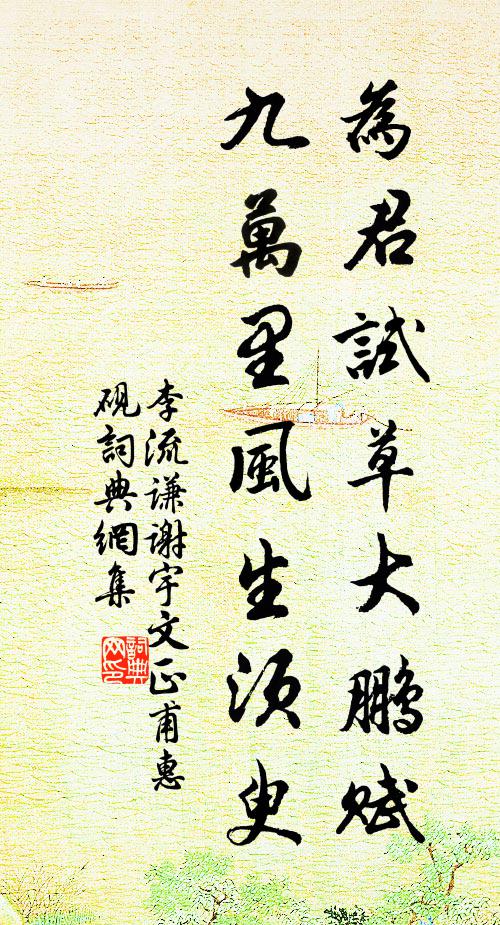 為君試草大鵬賦
九萬里風生須臾
李流謙謝宇文正甫惠
硯詞典網集
詞典
网印